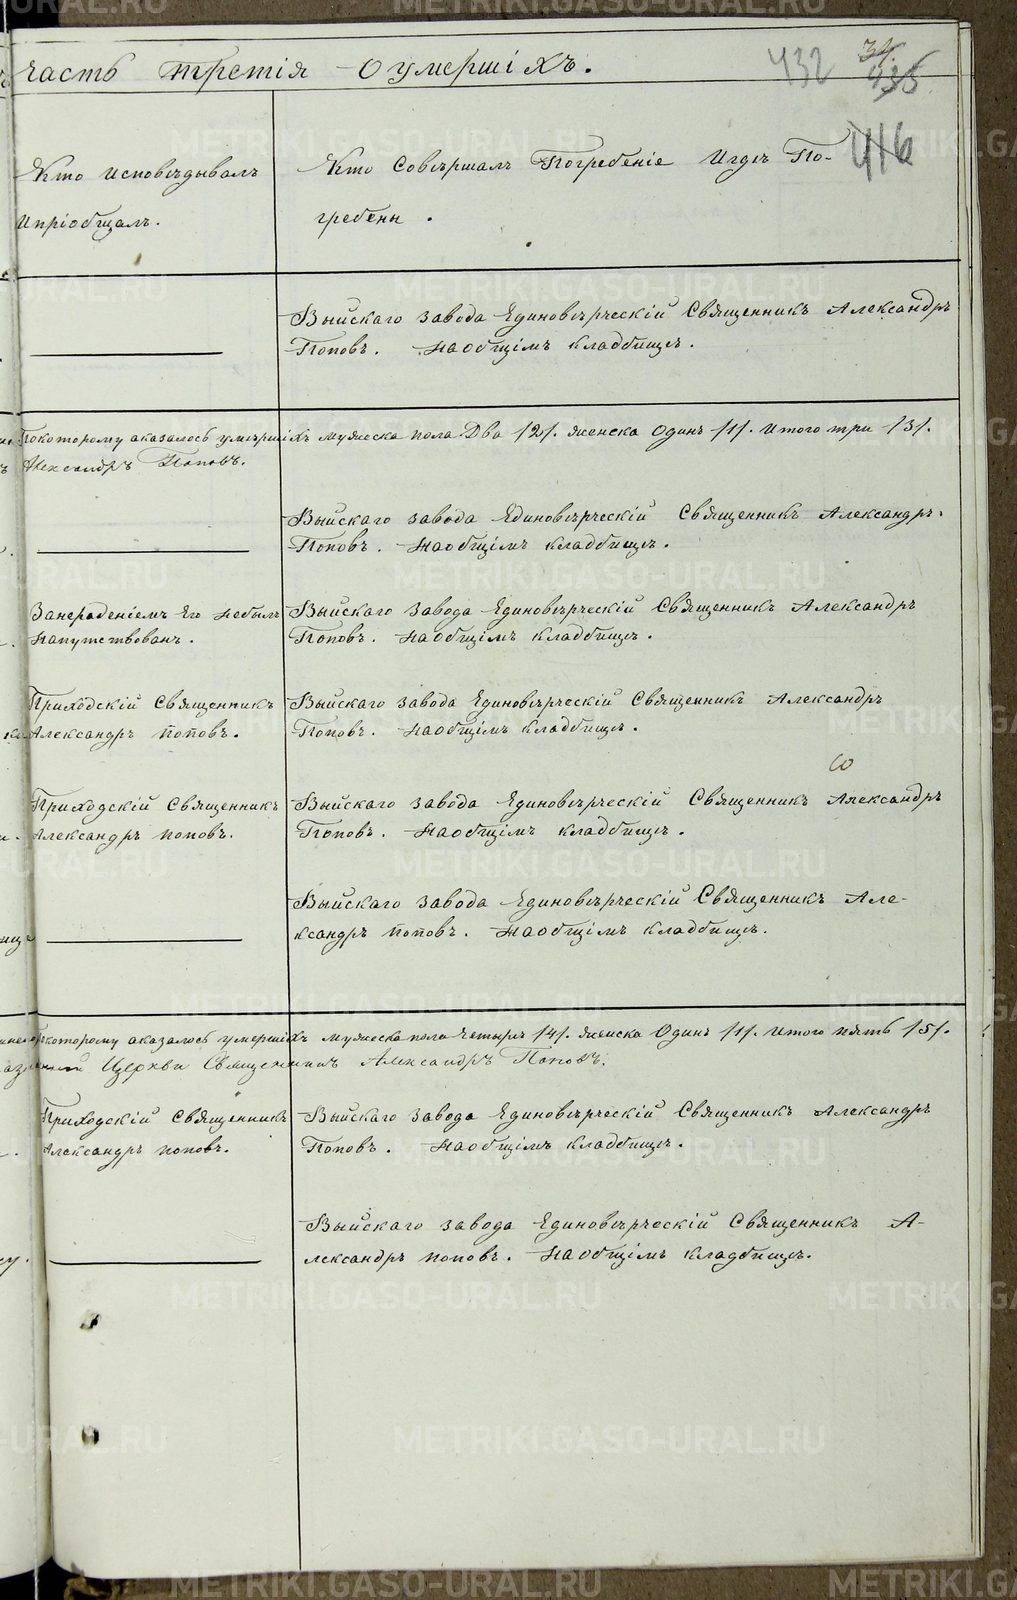 часть третія О умершіхъ.
432
34.
435
416
Кто исповѣдывалъ
Ипріобщалъ.
Кто Совѣршалъ Погребеніе Игдѣ По-
гребены.
Выйскаго завода Единовѣрческій Священникъ Александръ
Поповъ. Наобщімъ кладбищѣ.
Покоторому аказалось умѣршіхъ мужеска пола Два /2/. женска Одинъ /1/. Итого три /3/.
Александръ Поповъ.
Выйскаго завода Единовѣрческій Священникъ Александръ
Поповъ. Наобщімъ кладбищѣ.
Занерадѣніемъ Его Небылъ
Напутствованъ.
Выйскаго Завода Единовѣрческій Священникъ Александръ
Поповъ. Наобщімъ кладбищѣ.
Приходскій Священникъ
Александръ поповъ.
Выйскаго завода Единовѣрческій Священникъ Александръ
Поповъ. Наобщімъ кладбищѣ.
Приходскій Священникъ
Александръ поповъ.
Выйскаго завода Единовѣрческій Священникъ Александръ
Поповъ. Наобщімъ кладбищѣ.
Выйскаго завода Единовѣрческій Священникъ Але-
ксандръ поповъ. Наобщімъ кладбищѣ.
Покоторому аказалось умершіхъ мужеска пола Четыре /4/. женска Одинъ /1/. Итого пять /5/.
Церкви Священникъ Александръ Поповъ.
Приходскій Священникъ
Александръ поповъ.
Выйскаго Завода Единовѣрческій Священникъ Александръ
Поповъ. Наобщімъ кладбищѣ.
Выйскаго завода Единовѣрческій Священникъ А-
лександръ поповъ. Наобщімъ кладбищѣ.
METRIKI.GASO-URAL.RU